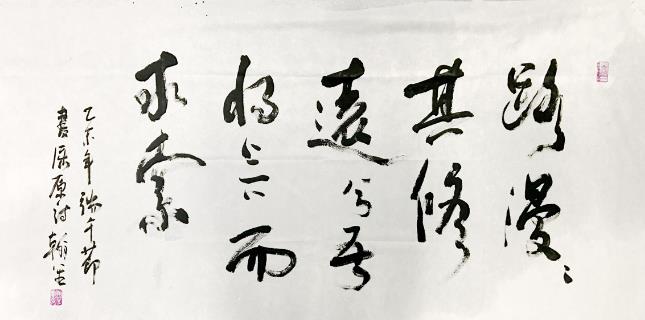 路漫〻
其修
遠兮吾
将上下而
求索
乙未年端午節
書屈原诗翰